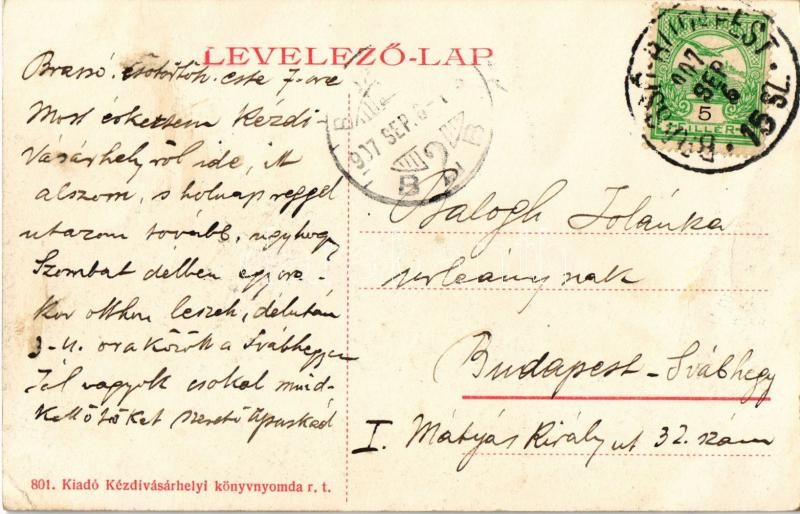 LEVELEZŐ-LAP
Brassó. csötörtök. este 7. óra
Most érkeztem Kézdi-
Vásárhelyről ide, itt
alszom, s holnap reggel
utazom tovább, úgyhogy
Szombat délben egy óra-
kor otthon leszek, délután
3-4. óra között a Svábhegyen
Jól vagyok csokol mind-
kettőtöket szerető Apuskád
Balogh Jolánka
urleánynak
Budapest - Svábhegy
I. Mátyás Király ut 32. szám
801. Kiadó Kézdivásárhelyi könyvnyomda r. t.
907 SEP. 6
VIII
B 2 B
BUDAPEST
907 SEP 6
15 SZ.
5
FILLÉR